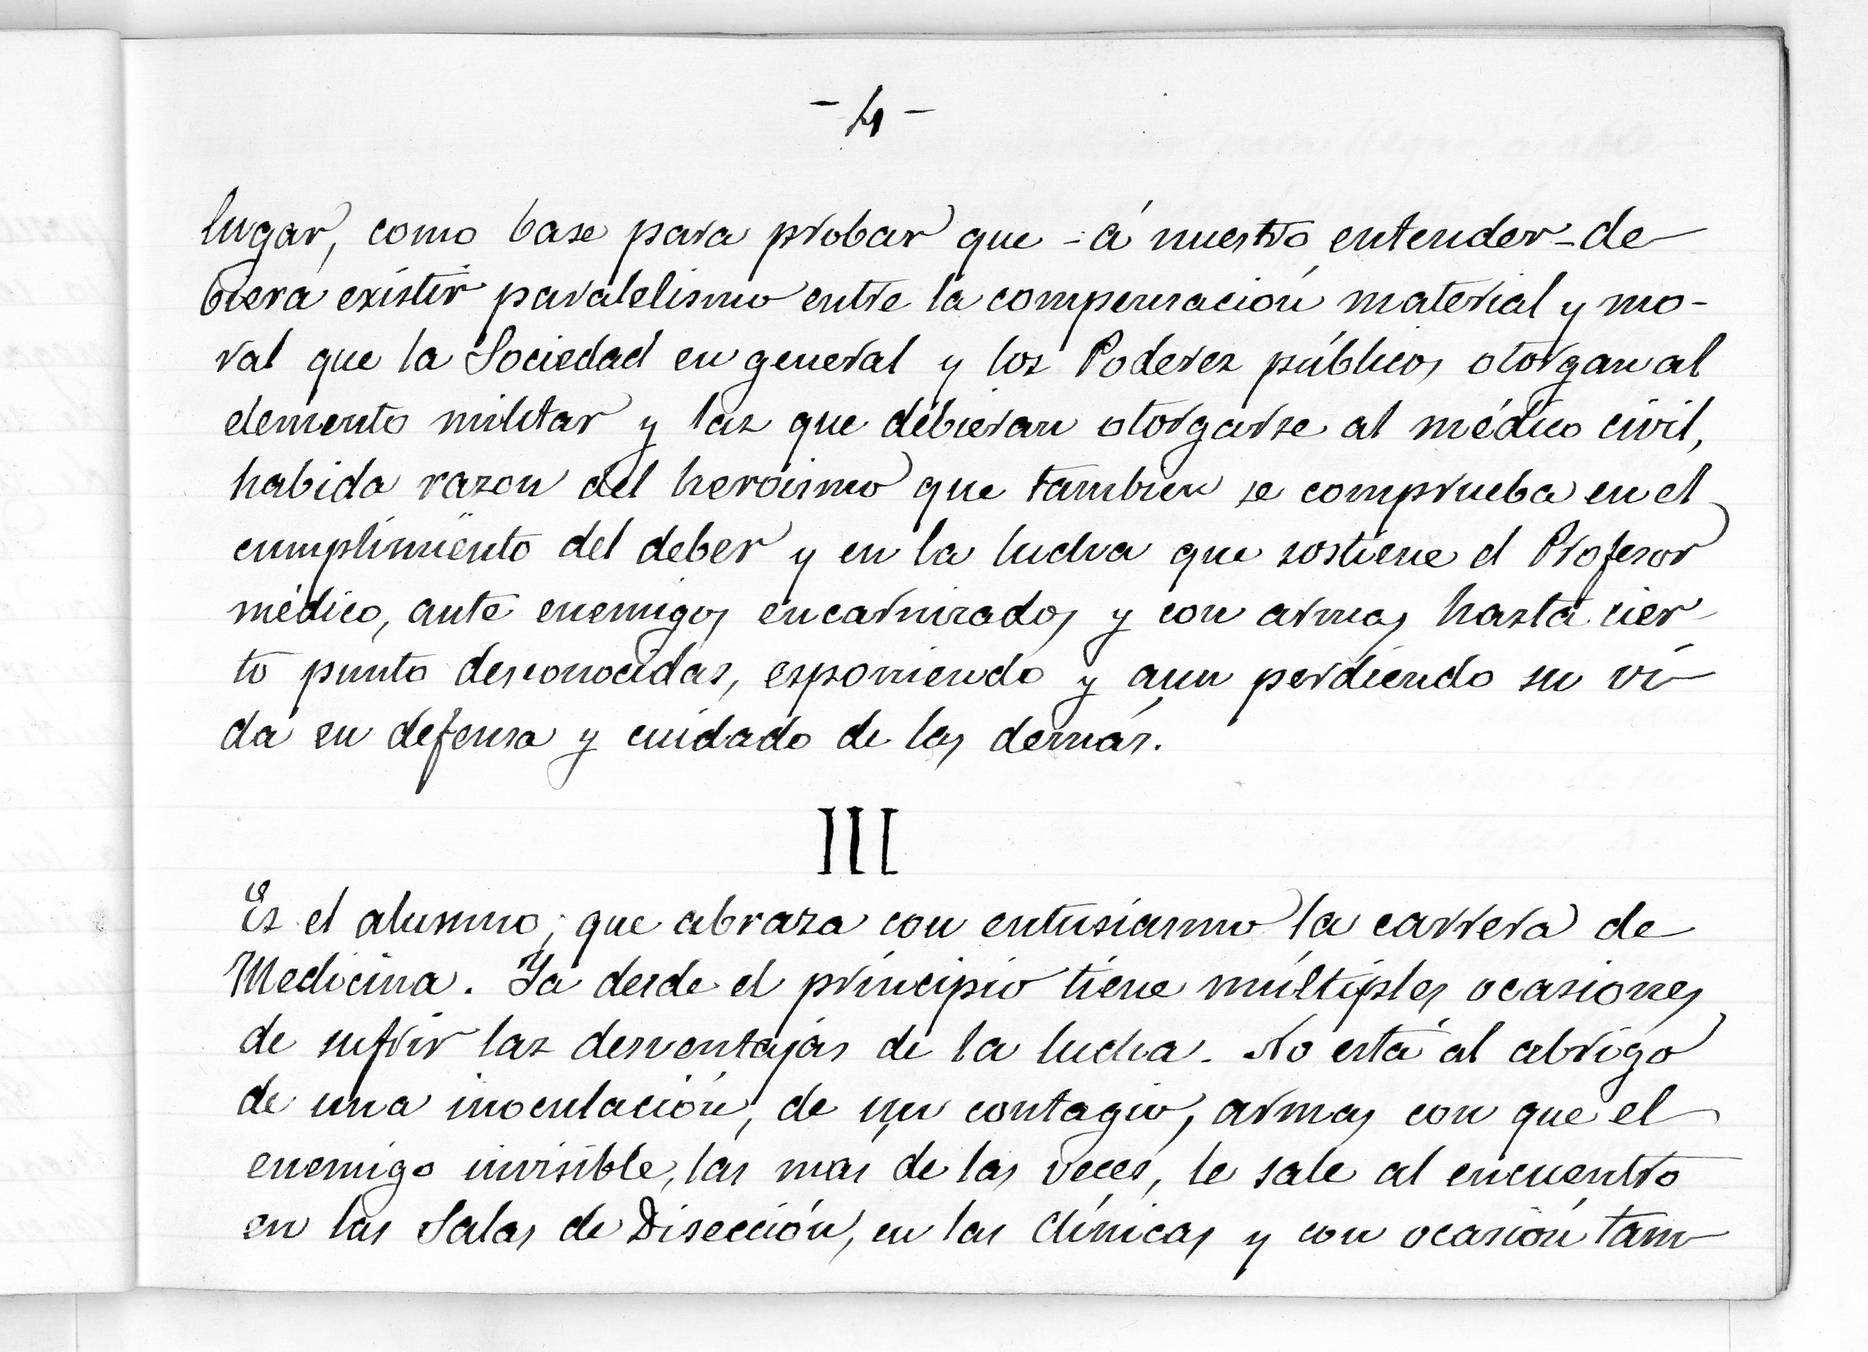 - 4 -
lugar, como base para probar que - á nuestro entender - de
biera existir paralelismo entre la compensación material y mo-
ral que la Sociedad en general y los Poderes públicos otorgan al
elemento militar y las que debieran otorgarse al médico civil,
habida razon del heroismo que tambien se comprueba en el
cumplimiento del deber y en la lucha que sostiene el Profesor
médico, ante enemigos encarnizados y con armas hasta cier-
to punto desconocidas, esponiendo y aun perdiendo su vi-
da en defensa y cuidado de los demás.
III
Es el alumno, que abraza con entusiasmo la carrera de
Medicina. Ya desde el principio tiene múltiples ocasiones
de sufrir las desventajas de la lucha. No está al abrigo
de una inoculación, de un contagio, armas con que el
enemigo invisible, las mas de las veces, le sale al encuentro
en las Salas de Disección, en las Clínicas y con ocasión tam-